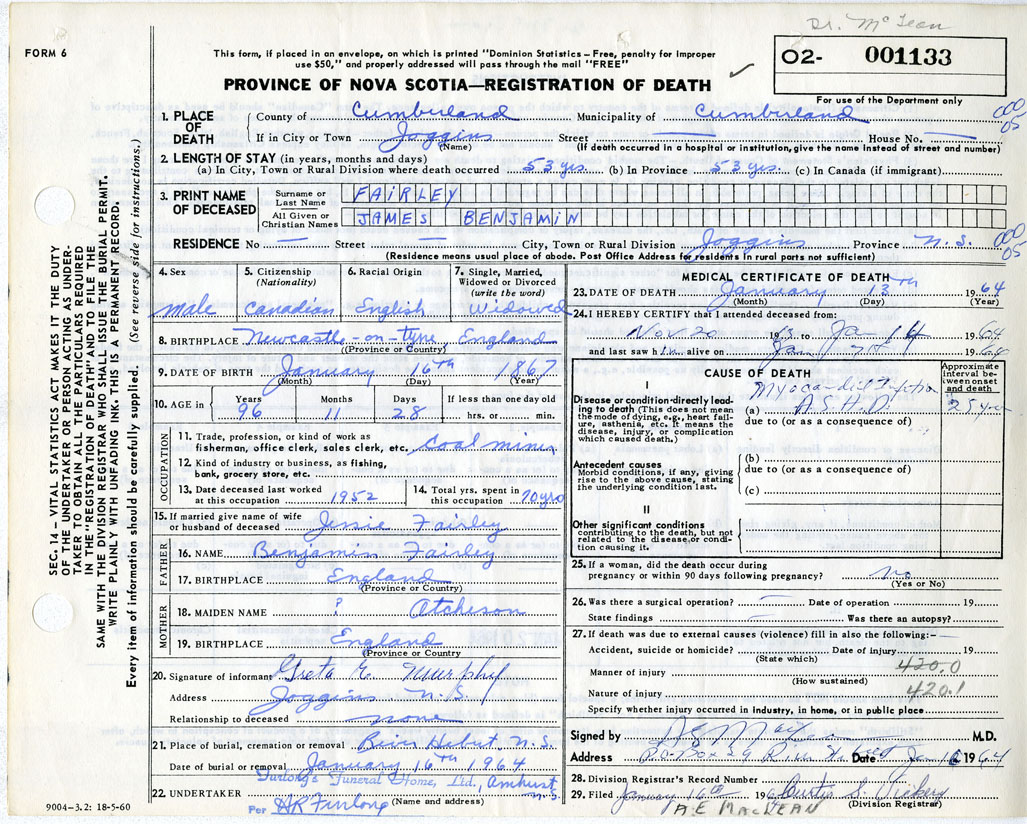 Dr. McLean
FORM 6
This form, if placed in an envelope, on which is printed "Dominion Statistics – Free, penalty for improper
use $50," and properly addressed will pass through the mail "FREE"
O2- 001133
For use of the Department only
PROVINCE OF NOVA SCOTIA—REGISTRATION OF DEATH
SEC. 14 – VITAL STATISTICS ACT MAKES IT THE DUTY
OF THE UNDERTAKER OR PERSON ACTING AS UNDER-
TAKER TO OBTAIN ALL THE PARTICULARS REQUIRED
IN THE "REGISTRATION OF DEATH" AND TO FILE THE
SAME WITH THE DIVISION REGISTRAR WHO SHALL ISSUE THE BURIAL PERMIT.
WRITE PLAINLY WITH UNFADING INK. THIS IS A PERMANENT RECORD.
Every item of information should be carefully supplied. (See reverse side for instructions.)
1. PLACE OF DEATH
County of Cumberland Municipality of Cumberland
000
05
If in City or Town Joggins Street — House No. —
(Name) (If death occurred in a hospital or institution, give the name instead of street and number)
2. LENGTH OF STAY (in years, months and days)
(a) In City, Town or Rural Division where death occurred 53 yrs. (b) In Province 53 yrs. (c) In Canada (if immigrant)
3. PRINT NAME OF DECEASED
Surname or Last Name FAIRLEY
All Given or Christian Names JAMES BENJAMIN
RESIDENCE No — Street — City, Town or Rural Division Joggins Province N.S.
000
05
(Residence means usual place of abode. Post Office Address for residents in rural parts not sufficient)
4. Sex
male
5. Citizenship
(Nationality)
Canadian
6. Racial Origin
English
7. Single, Married,
Widowed or Divorced
(write the word)
Widowed
8. BIRTHPLACE Newcastle-on-tyne England
(Province or Country)
9. DATE OF BIRTH January 16th 1867
(Month) (Day) (Year)
10. AGE in
Years Months Days If less than one day old
96 11 28 hrs. or min.
OCCUPATION
11. Trade, profession, or kind of work as
fisherman, office clerk, sales clerk, etc. Coal miner
12. Kind of industry or business, as fishing,
bank, grocery store, etc.
13. Date deceased last worked
at this occupation 1952
14. Total yrs. spent in
this occupation 70 yrs
15. If married give name of wife
or husband of deceased Jessie Fairley
FATHER
16. NAME Benjamin Fairley
17. BIRTHPLACE England
(Province or Country)
MOTHER
18. MAIDEN NAME ? Atcheson
19. BIRTHPLACE England
(Province or Country
20. Signature of informant Greta E. Murphy
Address Joggins N.S.
Relationship to deceased none
21. Place of burial, cremation or removal River Hebert, N.S.
Date of burial or removal January 16th 1964
22. UNDERTAKER Furlong's Funeral Home, Ltd., Amherst, N.S.
(Name and address)
Per HR Furlong
9004–3.2: 18-5-60
MEDICAL CERTIFICATE OF DEATH
23. DATE OF DEATH January 13th 1964
(Month) (Day) (Year)
24. I HEREBY CERTIFY that I attended deceased from:
Nov 20 to 14 1964
and last saw him alive on Jan 7th 1964
CAUSE OF DEATH
Approximate
interval be-
tween onset
and death
I
Disease or condition directly lead-
ing to death (This does not mean
the mode of dying, e.g., heart fail-
ure, asthenia, etc. It means the
disease, injury, or complication
which caused death.)
(a) A.S.H.D.
due to (or as a consequence of)
Antecedent causes
Morbid conditions, if any, giving
rise to the above cause, stating
the underlying condition last.
(b)
due to (or as a consequence of)
(c)
II
Other significant conditions
contributing to the death, but not
related to the disease or condi-
tion causing it.
25. If a woman, did the death occur during
pregnancy or within 90 days following pregnancy? no
(Yes or No)
26. Was there a surgical operation? — Date of operation 19
State findings — Was there an autopsy?
27. If death was due to external causes (violence) fill in also the following:—
Accident, suicide or homicide? Date of injury 19
(State which)
Manner of injury 420.0
(How sustained)
Nature of injury 420.1
Specify whether injury occurred in industry, in home, or in public place
Signed by M.D.
Address P.O. Box 29 River Hebert Date Jan 16 1964
28. Division Registrar's Record Number
29. Filed January 16th 196 Curtis S. Vickery
(Division Registrar)
A.E MACLEAN